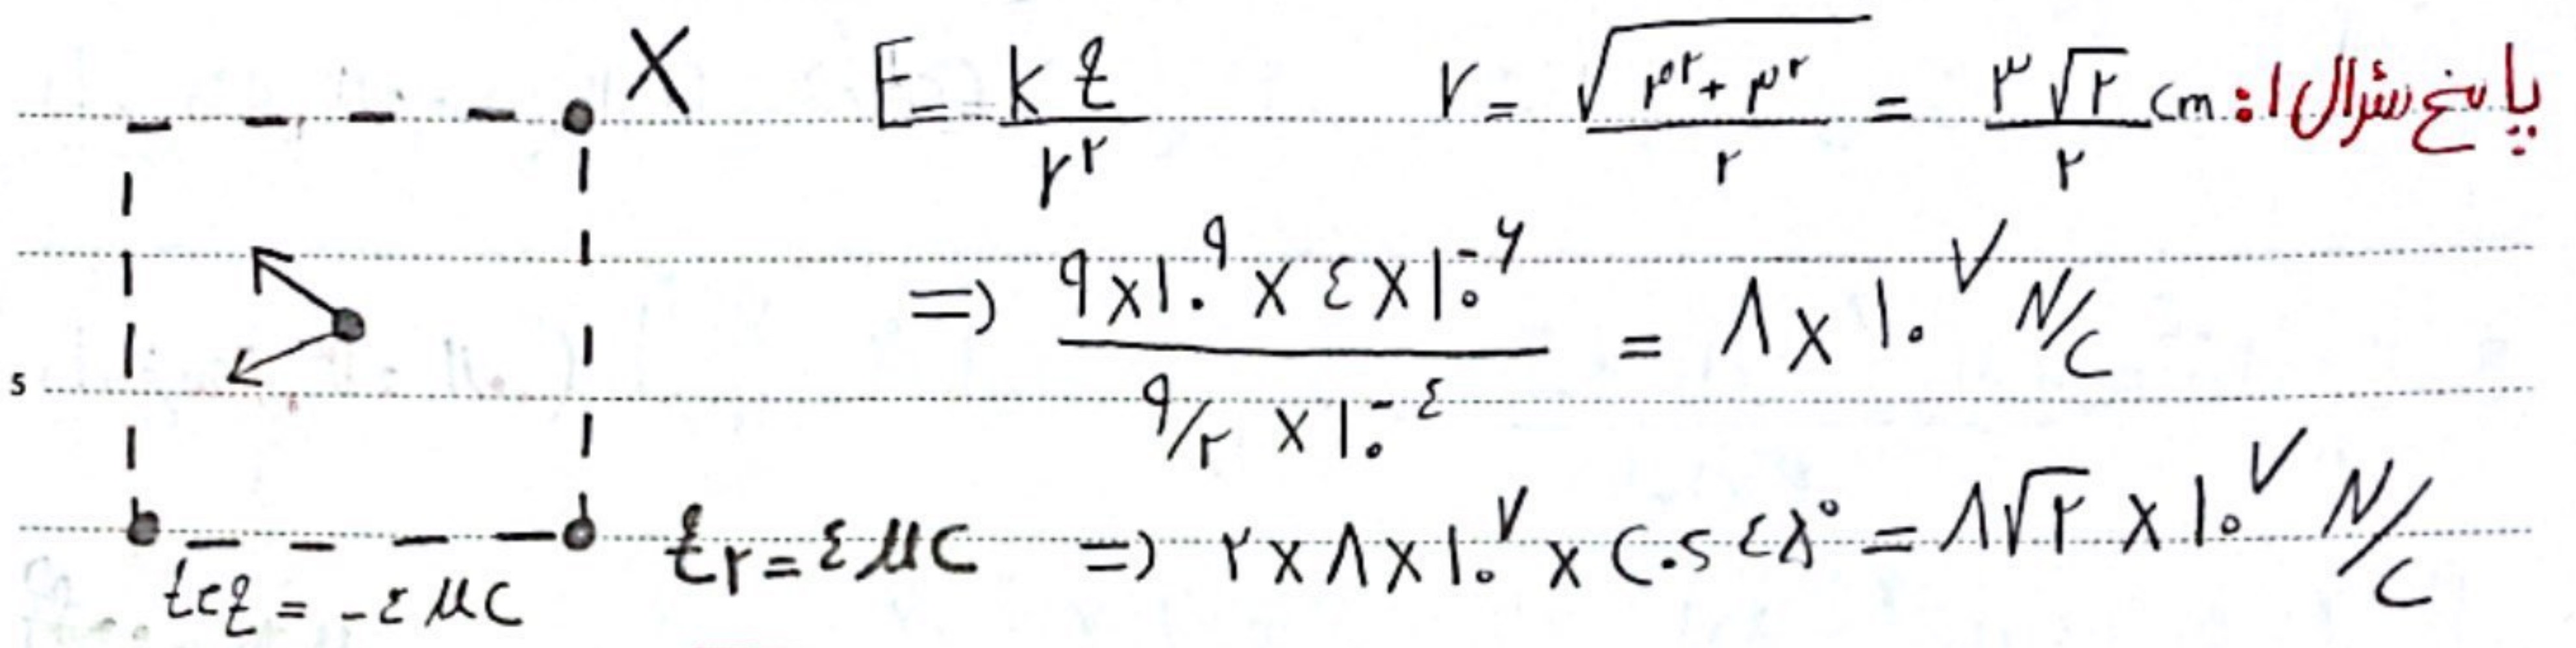 پاسخ سؤال ۱: r = √(۳^۲ + ۳^۲) / ۲ = ۳√۲ / ۲ cm
E = k q / r^۲
X
⇒ ۹×۱۰^۹ × ٤×۱۰^-۶ / ۹/۲ × ۱۰^-٤ = ۸ × ۱۰^۷ N/C
5
q۲ = ٤ μC ⇒ ۲×۸×۱۰^۷ × Cos ٤۵° = ۸√۲ × ۱۰^۷ N/C
= -٤ μC